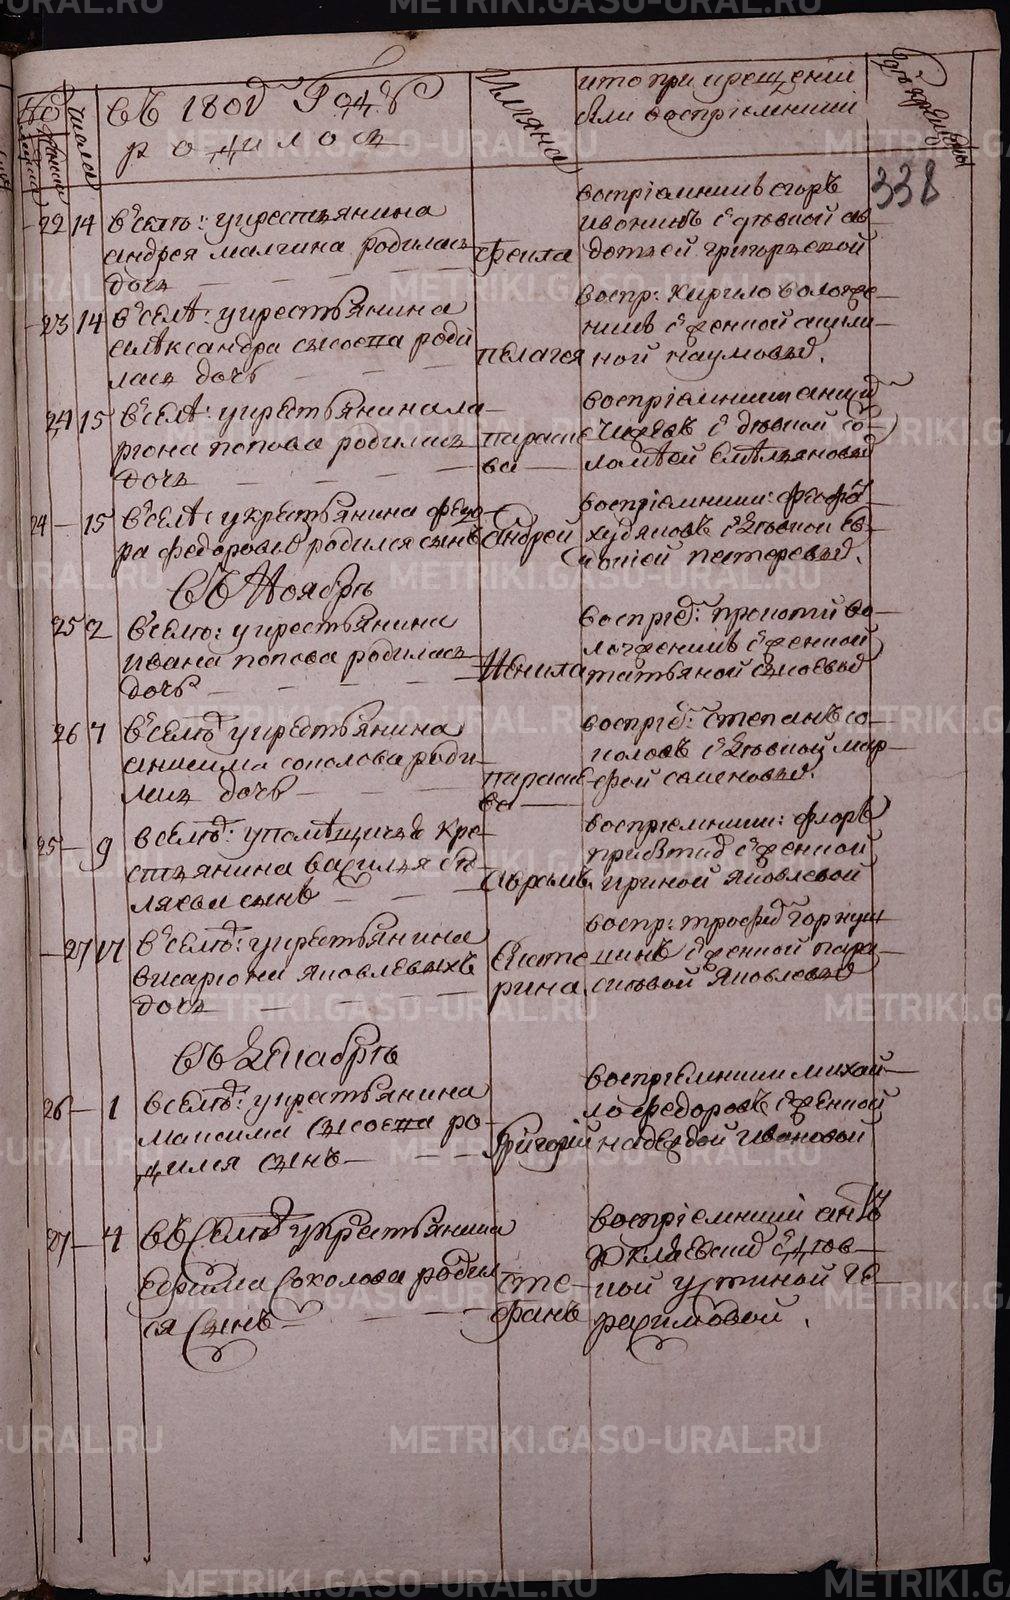 числа
въ 180 Году
родилось
имяна
кто при крещеніи
были воспріемники
338
22 14 в селе: у крестьянина
андрея малгина родилась
дочь
Фекла
воспріемникъ егоръ
ивонинъ с девкой ав
дотьей григорьевой
23 14 в селѣ: у крестьянина
александра сысоева роди
лась дочь
пелагея
воспр: кирило вологже
нинъ с женкой акули
ной наумовой.
24 15 в селѣ: у крестьянина ла
риона попова родилась
дочь
параске
ва
воспріемники
с девкой со
ломѣей емельяновой
24 15 в селѣ: у крестьянина федо
ра федоровых родился сынъ
Андрей
воспріемники:
худяковъ с девкой ев
Въ Ноябрѣ
25 2 в селѣ: у крестьянина
ивана попова родилась
дочь
воспріе: прокопій во
логженинъ с женкой
татьяной сысоевой
26 7 в селѣ у крестьянина
анисима соколова роди
лась дочь
параске
ва
воспріе: степанъ со
коловъ с девкой мар
фой семеновой.
25 9 в селѣ: у помѣщичья кре
стьянина василья бѣ
ляева сынъ
Аврамъ
воспріемники: флоръ
с женкой
ириной яковлевой
27 17 в селѣ: у крестьянина
висариона яковлевыхъ
дочь
Екате
рина
воспр: трофимъ горнуш
кинъ с женкой пара
сковой яковлевой
въ Декабрѣ
26 1 в селѣ: у крестьянина
максима сысоева ро
дился сынъ
Григорій
воспріемники михай
ло федоровъ с женкой
надеждой ивановой
27 4 въ Селѣ у крестьянина
ефима Соколова родил
ся Сынъ
Сте
фанъ
воспріемники
с дев
кой устиной ге
расимовой.
METRIKI.GASO-URAL.RU